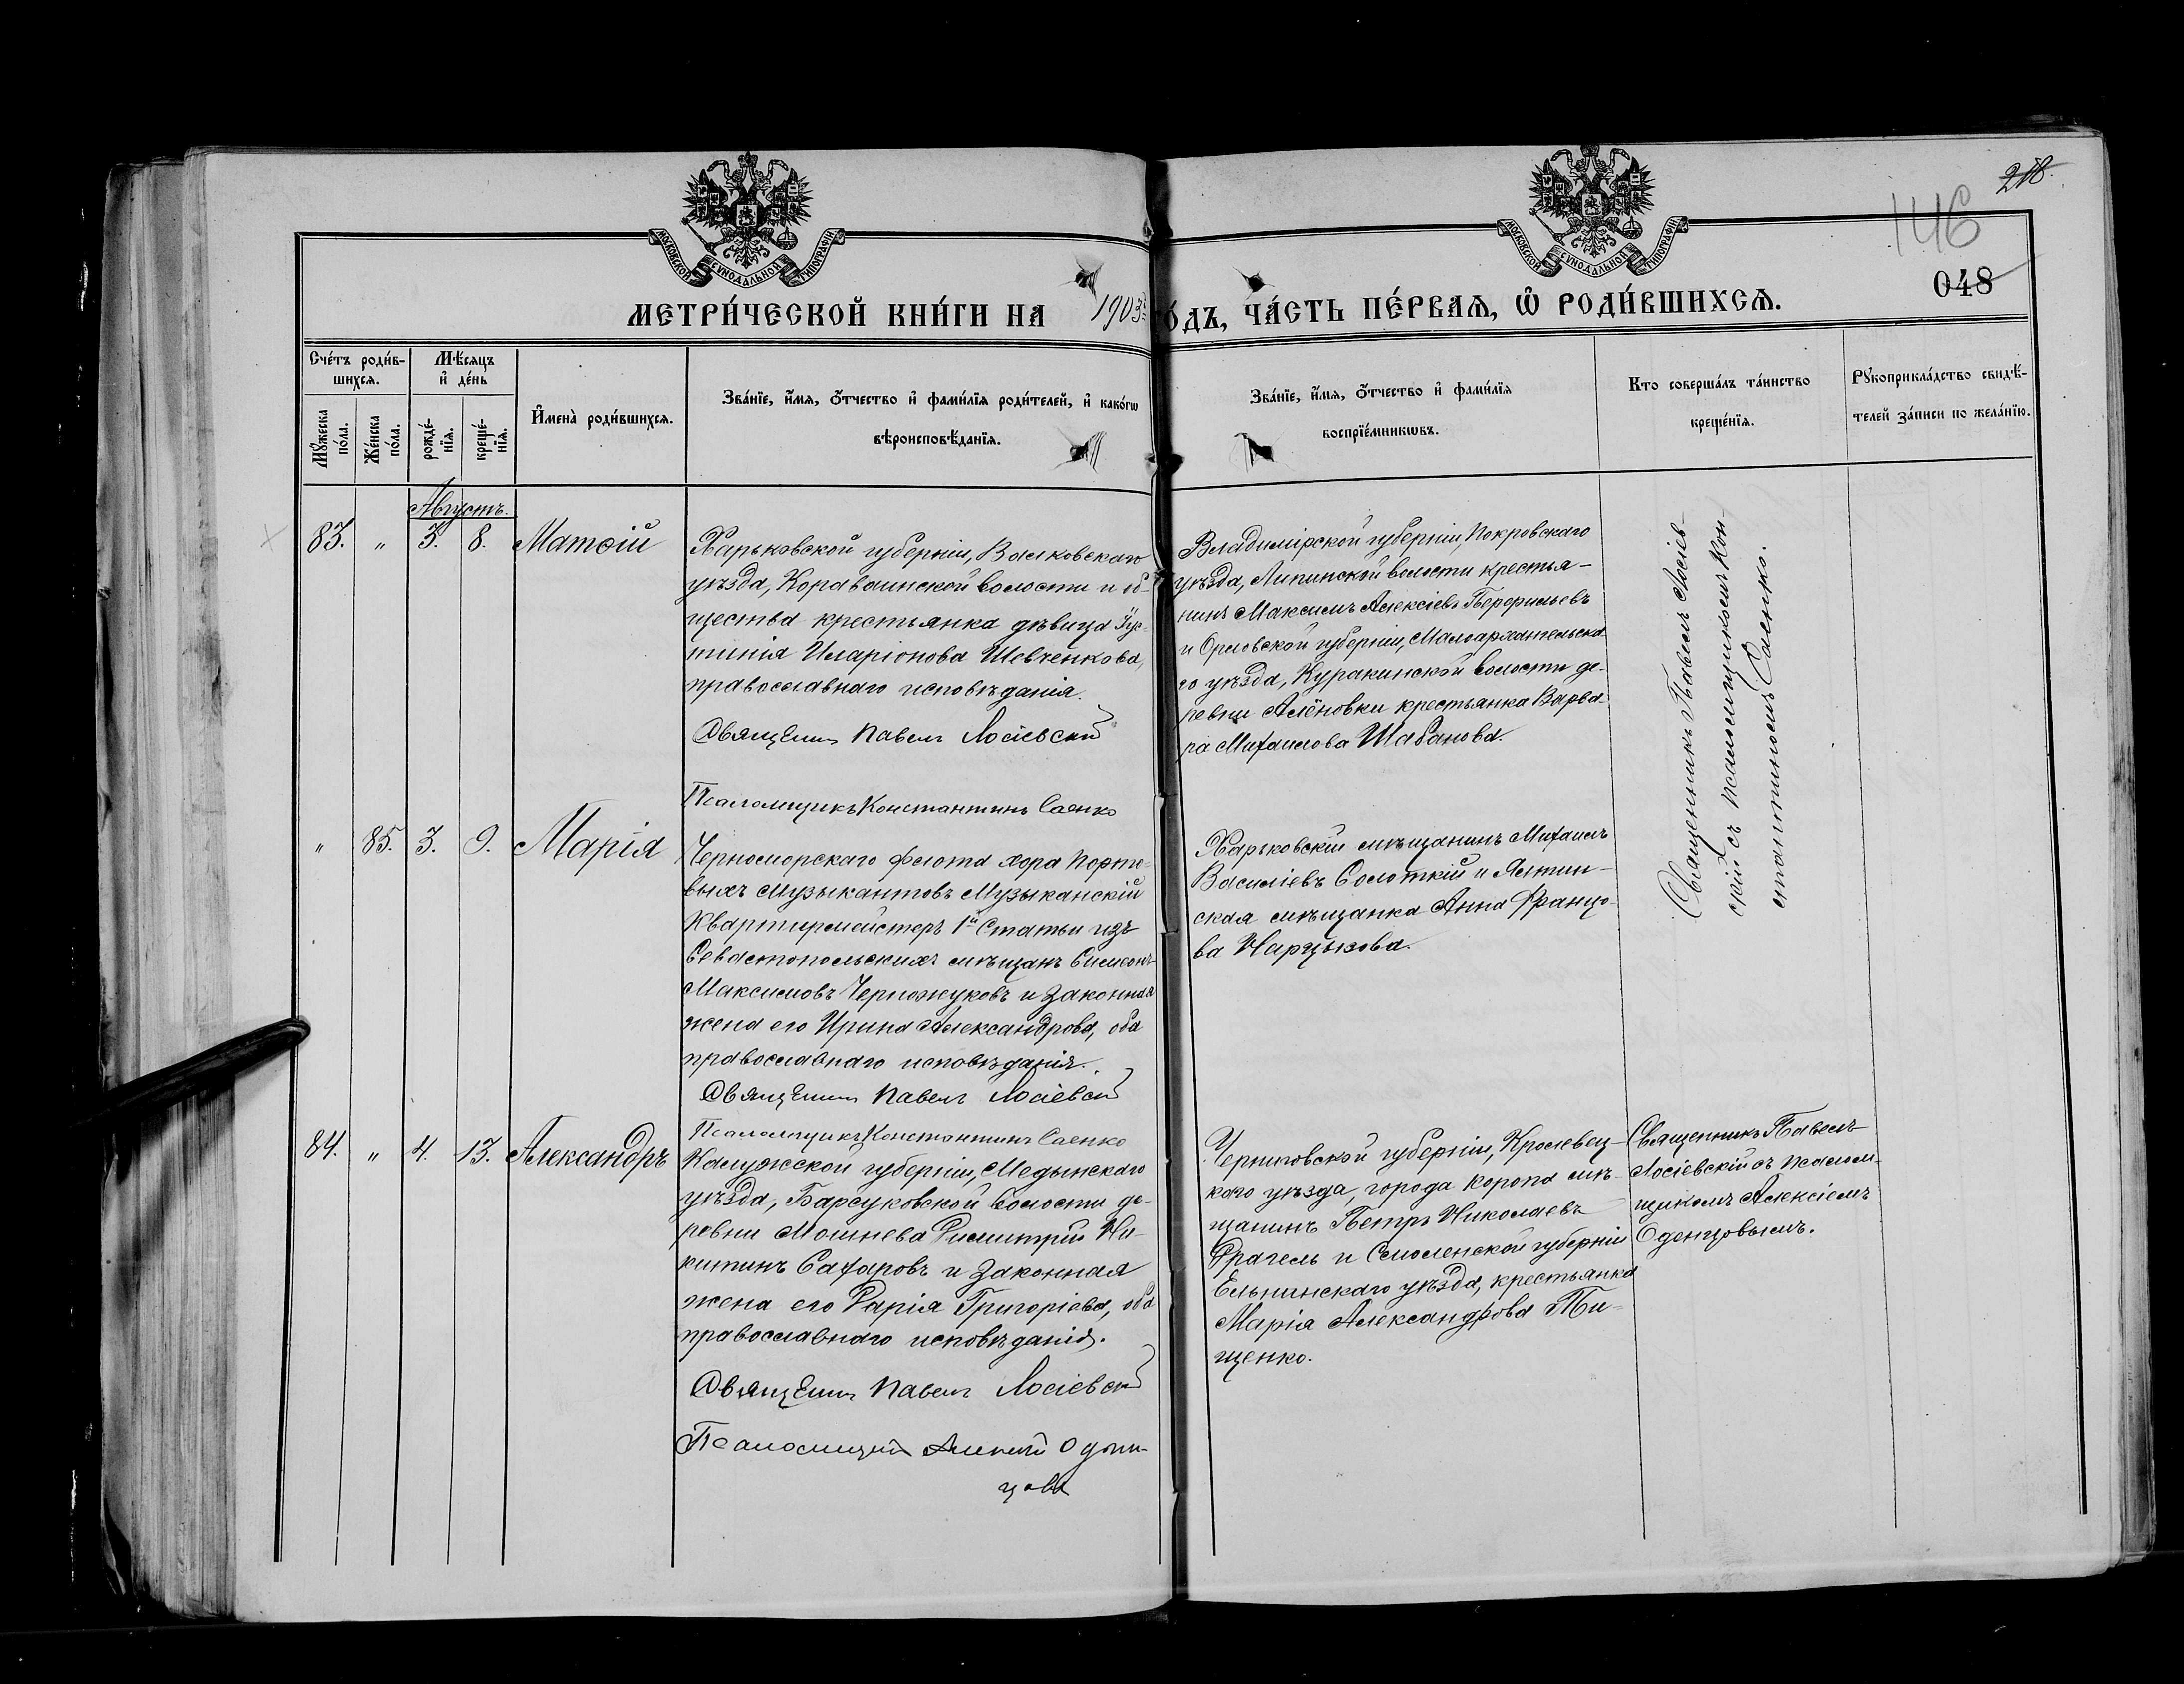 218.
146
048
МОСКОВСКОЙ СѴНОДАЛЬНОЙ ТИПОГРАФІИ
МОСКОВСКОЙ СѴНОДАЛЬНОЙ ТИПОГРАФІИ
МЕТРИ́ЧЕСКОЙ КНИ́ГИ НА 1903й ГО́ДЪ, ЧА́СТЬ ПЕ́РВАѦ, Ѡ РОДИ́ВШИХСѦ.
Счéтъ роди́в-
шихсѧ.
Мꙋ́жеска
по́ла.
Же́нска
по́ла.
Мѣ́сѧцъ
и҆ де́нь
рожде́-
нїѧ.
креще́-
нїѧ.
И҆менà роди́вшихсѧ.
Зва́нїе, и҆́мѧ, ѻ҆́тчество и҆ фами́лїѧ роди́телей, и҆ како́гѡ
вѣроисповѣ́данїѧ.
Зва́нїе, и҆́мѧ, ѻ҆́тчество и҆ фами́лїѧ
воспрїе́мникѡвъ.
Кто соверша́лъ та́инство
креще́нїѧ.
Рꙋкоприкла́дство свидѣ́-
телей за́писи по жела́нїю.
Августъ.
83. " 3. 8. Матѳій
Харьковской губерніи, Валковскаго
уѣзда, Караванской волости и об-
щества крестьянка дѣвица Іус-
тинія Иларіонова Шевченкова,
православнаго исповѣданія.
Священникъ Павелъ Лосіевскій
Псаломщикъ Константинъ Саенко
Владимірской губерніи, Покровскаго
уѣзда, Липинской волости крестья-
нинъ Максимъ Алексіевъ Перфильевъ
и Орловской губерніи, Малоархангельска-
го уѣзда, Куракинской волости де-
ревни Алёновки крестьянка Варва-
ра Михаилова Шабанова.
Священникъ Павелъ Лосіев-
скій съ псаломщикомъ Кон-
стантиномъ Саенко.
" 85. 3. 9. Марія
Черноморскаго флота хора порто-
выхъ музыкантовъ Музыканскій
Квартирмейстеръ 1й Статьи изъ
Севастопольскихъ мѣщанъ Симеонъ
Максимовъ Черножуковъ и законная
жена его Ирина Александрова, оба
православнаго исповѣданія.
Священникъ Павелъ Лосіевскій
Псаломщикъ Константинъ Саенко
Харьковскій мѣщанинъ Михаилъ
Василіевъ Солоткій и Ялтин-
ская мѣщанка Анна Францо-
ва Нарцызова.
84. " 4. 13. Александръ
Калужской губерніи, Медынскаго
уѣзда, Барсуковской волости де-
ревни Мошнева Димитрій Ни-
китинъ Сахаровъ и законная
жена его Дарія Григоріева, оба
православнаго исповѣданія.
Священникъ Павелъ Лосіевскій
Псаломщикъ Алексій Один-
цовъ
Черниговской губерніи, Кролевец-
каго уѣзда, города Коропа мѣ-
щанинъ Петръ Николаевъ
Драгель и Смоленской губерніи
Ельнинскаго уѣзда, крестьянка
Марія Александрова Ти-
щенко.
Священникъ Павелъ
Лосіевскій съ псалом-
щикомъ Алексіемъ
Оденцовымъ.